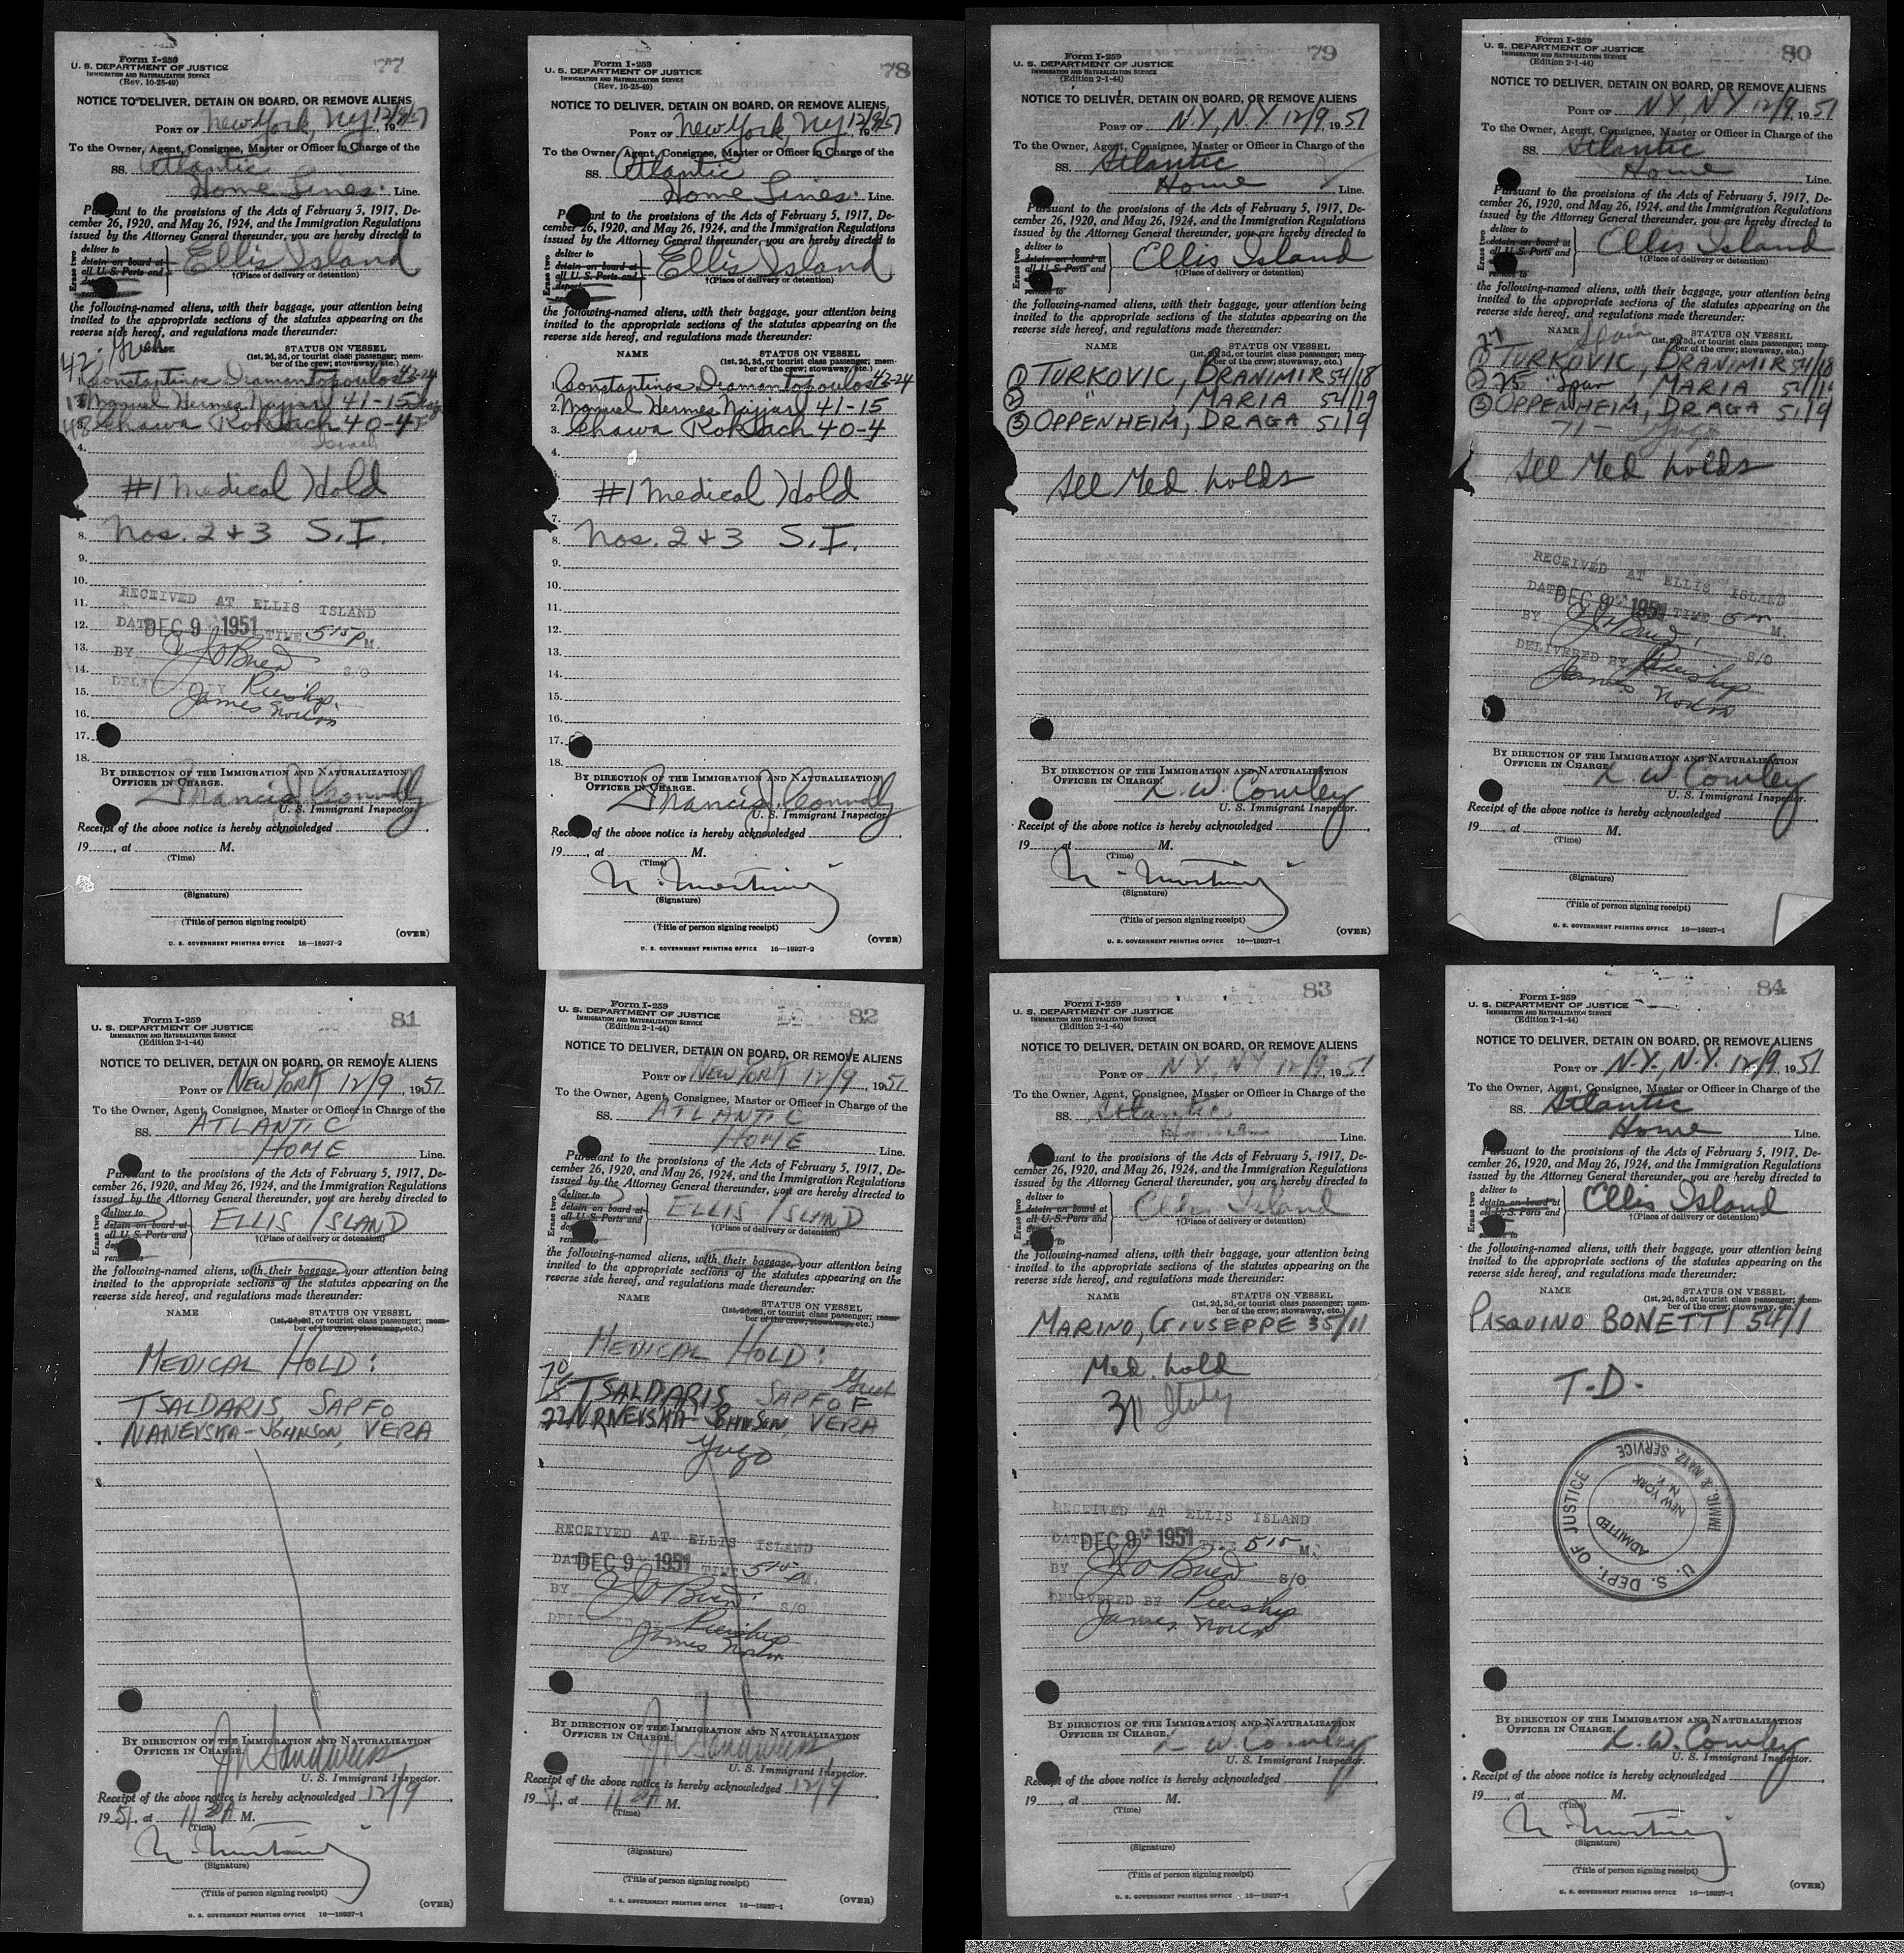 77
Form I-259
U. S. DEPARTMENT OF JUSTICE
IMMIGRATION AND NATURALIZATION SERVICE
(Rev. 10-25-49)
NOTICE TO DELIVER, DETAIN ON BOARD, OR REMOVE ALIENS
PORT OF New York, Ny 12/9 1951
To the Owner, Agent, Consignee, Master or Officer in Charge of the
SS. Atlantic
Home Lines. Line.
Pursuant to the provisions of the Acts of February 5, 1917, De-
cember 26, 1920, and May 26, 1924, and the Immigration Regulations
issued by the Attorney General thereunder, you are hereby directed to
Erase two
deliver to
detain on board at
all U. S. Ports and
Ellis Island
†(Place of delivery or detention)
the following-named aliens, with their baggage, your attention being
invited to the appropriate sections of the statutes appearing on the
reverse side hereof, and regulations made thereunder:
STATUS ON VESSEL
(1st, 2d, 3d, or tourist class passenger; mem-
ber of the crew; stowaway, etc.)
42
1. Constantinos Diamantopoulos 42-24
2. Manuel Hermes Najjar 41-15
48 3. Chawa Roksach 40-4 F
Israel
4.
#1 Medical Hold
8. Nos. 2 + 3 S.I.
9.
10.
RECEIVED AT ELLIS ISLAND
11.
12. DATE DEC 9 1951 TIME 5 15 P M.
13. BY J O'Brien
14. S/O
15. DELIVERED BY Pership
James Norton
16.
17.
18.
BY DIRECTION OF THE IMMIGRATION AND NATURALIZATION
OFFICER IN CHARGE.
Francis J. Connolly
U. S. Immigrant Inspector
Receipt of the above notice is hereby acknowledged
19 , at M.
(Time)
(Signature)
(Title of person signing receipt)
(OVER)
U. S. GOVERNMENT PRINTING OFFICE 16—18927-2
78
Form I-259
U. S. DEPARTMENT OF JUSTICE
IMMIGRATION AND NATURALIZATION SERVICE
(Rev. 10-25-49)
NOTICE TO DELIVER, DETAIN ON BOARD, OR REMOVE ALIENS
PORT OF New York, Ny 12/9 1951
To the Owner, Agent, Consignee, Master or Officer in Charge of the
SS. Atlantic
Home Lines. Line.
Pursuant to the provisions of the Acts of February 5, 1917, De-
cember 26, 1920, and May 26, 1924, and the Immigration Regulations
issued by the Attorney General thereunder, you are hereby directed to
Erase two
deliver to
detain on board at
all U. S. Ports and
deport
Ellis Island
†(Place of delivery or detention)
the following-named aliens, with their baggage, your attention being
invited to the appropriate sections of the statutes appearing on the
reverse side hereof, and regulations made thereunder:
NAME STATUS ON VESSEL
(1st, 2d, 3d, or tourist class passenger; mem-
ber of the crew; stowaway, etc.)
1. Constantinos Diamantopoulos 42-24
2. Manuel Hermes Najjar 41-15
3. Chawa Roksach 40-4
4.
#1 Medical Hold
7.
8. Nos. 2 + 3 S.I.
9.
10.
11.
12.
13.
14.
15.
16.
17.
18.
BY DIRECTION OF THE IMMIGRATION AND NATURALIZATION
OFFICER IN CHARGE.
Francis J. Connolly
U. S. Immigrant Inspector
Receipt of the above notice is hereby acknowledged
19 , at M.
(Time)
(Signature)
(Title of person signing receipt)
(OVER)
U. S. GOVERNMENT PRINTING OFFICE 16—18927-2
79
Form I-259
U. S. DEPARTMENT OF JUSTICE
IMMIGRATION AND NATURALIZATION SERVICE
(Edition 2-1-44)
NOTICE TO DELIVER, DETAIN ON BOARD, OR REMOVE ALIENS
PORT OF N.Y., N.Y 12/9, 1951
To the Owner, Agent, Consignee, Master or Officer in Charge of the
SS. Atlantic
Home Line.
Pursuant to the provisions of the Acts of February 5, 1917, De-
cember 26, 1920, and May 26, 1924, and the Immigration Regulations
issued by the Attorney General thereunder, you are hereby directed to
Erase two
deliver to
detain on board at
all U. S. Ports and
remove to
Ellis Island
†(Place of delivery or detention)
the following-named aliens, with their baggage, your attention being
invited to the appropriate sections of the statutes appearing on the
reverse side hereof, and regulations made thereunder:
NAME STATUS ON VESSEL
(1st, 2d, 3d, or tourist class passenger; mem-
ber of the crew; stowaway, etc.)
① TURKOVIC, BRANIMIR 54/18
② " , MARIA 54/19
③ OPPENHEIM, DRAGA 51/9
All Med. holds
BY DIRECTION OF THE IMMIGRATION AND NATURALIZATION
OFFICER IN CHARGE.
L. W. Cowley
U. S. Immigrant Inspector.
Receipt of the above notice is hereby acknowledged
19 , at M.
(Time)
(Signature)
(Title of person signing receipt)
(OVER)
U. S. GOVERNMENT PRINTING OFFICE 16—18927-1
80
Form I-259
U. S. DEPARTMENT OF JUSTICE
IMMIGRATION AND NATURALIZATION SERVICE
(Edition 2-1-44)
NOTICE TO DELIVER, DETAIN ON BOARD, OR REMOVE ALIENS
PORT OF N.Y, N.Y 12/9, 1951
To the Owner, Agent, Consignee, Master or Officer in Charge of the
SS. Atlantic
Home Line.
Pursuant to the provisions of the Acts of February 5, 1917, De-
cember 26, 1920, and May 26, 1924, and the Immigration Regulations
issued by the Attorney General thereunder, you are hereby directed to
Erase two
deliver to
detain on board at
all U. S. Ports and
remove to
Ellis Island
†(Place of delivery or detention)
the following-named aliens, with their baggage, your attention being
invited to the appropriate sections of the statutes appearing on the
reverse side hereof, and regulations made thereunder:
NAME Spain STATUS ON VESSEL
(1st, 2d, 3d, or tourist class passenger; mem-
ber of the crew; stowaway, etc.)
① TURKOVIC, BRANIMIR 54/18
② 75 " Spain, MARIA 54/19
③ OPPENHEIM, DRAGA 51/9
71 - Yugo
All Med holds
RECEIVED AT ELLIS ISLAND
DATE DEC 9 1951 TIME 5 M.
BY J O'Brien S/O
DELIVERED BY Pership
James Norton
BY DIRECTION OF THE IMMIGRATION AND NATURALIZATION
OFFICER IN CHARGE.
L. W. Cowley
U. S. Immigrant Inspector.
Receipt of the above notice is hereby acknowledged
19 , at M.
(Time)
(Signature)
(Title of person signing receipt)
U. S. GOVERNMENT PRINTING OFFICE 16—18927-1
81
Form I-259
U. S. DEPARTMENT OF JUSTICE
IMMIGRATION AND NATURALIZATION SERVICE
(Edition 2-1-44)
NOTICE TO DELIVER, DETAIN ON BOARD, OR REMOVE ALIENS
PORT OF NEW YORK 12/9, 1951
To the Owner, Agent, Consignee, Master or Officer in Charge of the
SS. ATLANTIC
HOME Line.
Pursuant to the provisions of the Acts of February 5, 1917, De-
cember 26, 1920, and May 26, 1924, and the Immigration Regulations
issued by the Attorney General thereunder, you are hereby directed to
Erase two
deliver to
detain on board at
all U. S. Ports and
ELLIS ISLAND
†(Place of delivery or detention)
the following-named aliens, with their baggage, your attention being
invited to the appropriate sections of the statutes appearing on the
reverse side hereof, and regulations made thereunder:
NAME STATUS ON VESSEL
(1st, 2d, 3d, or tourist class passenger; mem-
ber of the crew; stowaway, etc.)
MEDICAL HOLD:
TSALDARIS, SAPFO
NANEVSKA-JOHNSON, VERA
BY DIRECTION OF THE IMMIGRATION AND NATURALIZATION
OFFICER IN CHARGE.
U. S. Immigrant Inspector.
Receipt of the above notice is hereby acknowledged 12/9
1951, at 11 20 A M.
(Time)
(Signature)
(Title of person signing receipt)
(OVER)
U. S. GOVERNMENT PRINTING OFFICE 16—18927-1
82
Form I-259
U. S. DEPARTMENT OF JUSTICE
IMMIGRATION AND NATURALIZATION SERVICE
(Edition 2-1-44)
NOTICE TO DELIVER, DETAIN ON BOARD, OR REMOVE ALIENS
PORT OF NEW YORK 12/9, 1951
To the Owner, Agent, Consignee, Master or Officer in Charge of the
SS. ATLANTIC
HOME Line.
Pursuant to the provisions of the Acts of February 5, 1917, De-
cember 26, 1920, and May 26, 1924, and the Immigration Regulations
issued by the Attorney General thereunder, you are hereby directed to
Erase two
deliver to
detain on board at
all U. S. Ports and
ELLIS ISLAND
†(Place of delivery or detention)
the following-named aliens, with their baggage, your attention being
invited to the appropriate sections of the statutes appearing on the
reverse side hereof, and regulations made thereunder:
NAME STATUS ON VESSEL
(1st, 2d, 3d, or tourist class passenger; mem-
ber of the crew; stowaway, etc.)
MEDICAL HOLD:
TSALDARIS, SAPFO F
NANEVSKA-JOHNSON, VERA
Yugo
RECEIVED AT ELLIS ISLAND
DATE DEC 9 1951 TIME 5 15 P M.
BY J O'Brien S/O
DELIVERED BY Pership
James Norton
BY DIRECTION OF THE IMMIGRATION AND NATURALIZATION
OFFICER IN CHARGE.
U. S. Immigrant Inspector.
Receipt of the above notice is hereby acknowledged 12/9
1951, at 11 20 A M.
(Time)
(Signature)
(Title of person signing receipt)
(OVER)
U. S. GOVERNMENT PRINTING OFFICE 16—18927-1
83
Form I-259
U. S. DEPARTMENT OF JUSTICE
IMMIGRATION AND NATURALIZATION SERVICE
(Edition 2-1-44)
NOTICE TO DELIVER, DETAIN ON BOARD, OR REMOVE ALIENS
PORT OF N.Y., N.Y 12/9, 1951
To the Owner, Agent, Consignee, Master or Officer in Charge of the
SS. Atlantic
Home Line.
Pursuant to the provisions of the Acts of February 5, 1917, De-
cember 26, 1920, and May 26, 1924, and the Immigration Regulations
issued by the Attorney General thereunder, you are hereby directed to
Erase two
deliver to
detain on board at
all U. S. Ports and
Ellis Island
†(Place of delivery or detention)
the following-named aliens, with their baggage, your attention being
invited to the appropriate sections of the statutes appearing on the
reverse side hereof, and regulations made thereunder:
NAME STATUS ON VESSEL
(1st, 2d, 3d, or tourist class passenger; mem-
ber of the crew; stowaway, etc.)
MARINO, GIUSEPPE 35/11
Med. hold
Italy
RECEIVED AT ELLIS ISLAND
DATE DEC 9 1951 TIME 5 15 M.
BY J O'Brien S/O
DELIVERED BY Pership
James Norton
BY DIRECTION OF THE IMMIGRATION AND NATURALIZATION
OFFICER IN CHARGE.
L. W. Cowley
U. S. Immigrant Inspector.
Receipt of the above notice is hereby acknowledged
19 , at M.
(Time)
(Signature)
(Title of person signing receipt)
U. S. GOVERNMENT PRINTING OFFICE 16—18927-1
84
Form I-259
U. S. DEPARTMENT OF JUSTICE
IMMIGRATION AND NATURALIZATION SERVICE
(Edition 2-1-44)
NOTICE TO DELIVER, DETAIN ON BOARD, OR REMOVE ALIENS
PORT OF N.Y., N.Y. 12/9, 1951
To the Owner, Agent, Consignee, Master or Officer in Charge of the
SS. Atlantic
Home Line.
Pursuant to the provisions of the Acts of February 5, 1917, De-
cember 26, 1920, and May 26, 1924, and the Immigration Regulations
issued by the Attorney General thereunder, you are hereby directed to
Erase two
deliver to
detain on board at
all U. S. Ports and
remove to
Ellis Island
†(Place of delivery or detention)
the following-named aliens, with their baggage, your attention being
invited to the appropriate sections of the statutes appearing on the
reverse side hereof, and regulations made thereunder:
NAME STATUS ON VESSEL
(1st, 2d, 3d, or tourist class passenger; mem-
ber of the crew; stowaway, etc.)
PASQUINO BONETTI 54/1
T.D.
U. S. DEPT. OF JUSTICE
IMMIG. & NATZ. SERVICE
ADMITTED
NEW YORK
N. Y.
BY DIRECTION OF THE IMMIGRATION AND NATURALIZATION
OFFICER IN CHARGE.
L. W. Cowley
U. S. Immigrant Inspector.
Receipt of the above notice is hereby acknowledged
19 , at M.
(Time)
(Signature)
(Title of person signing receipt)
(OVER)
U. S. GOVERNMENT PRINTING OFFICE 16—18927-1